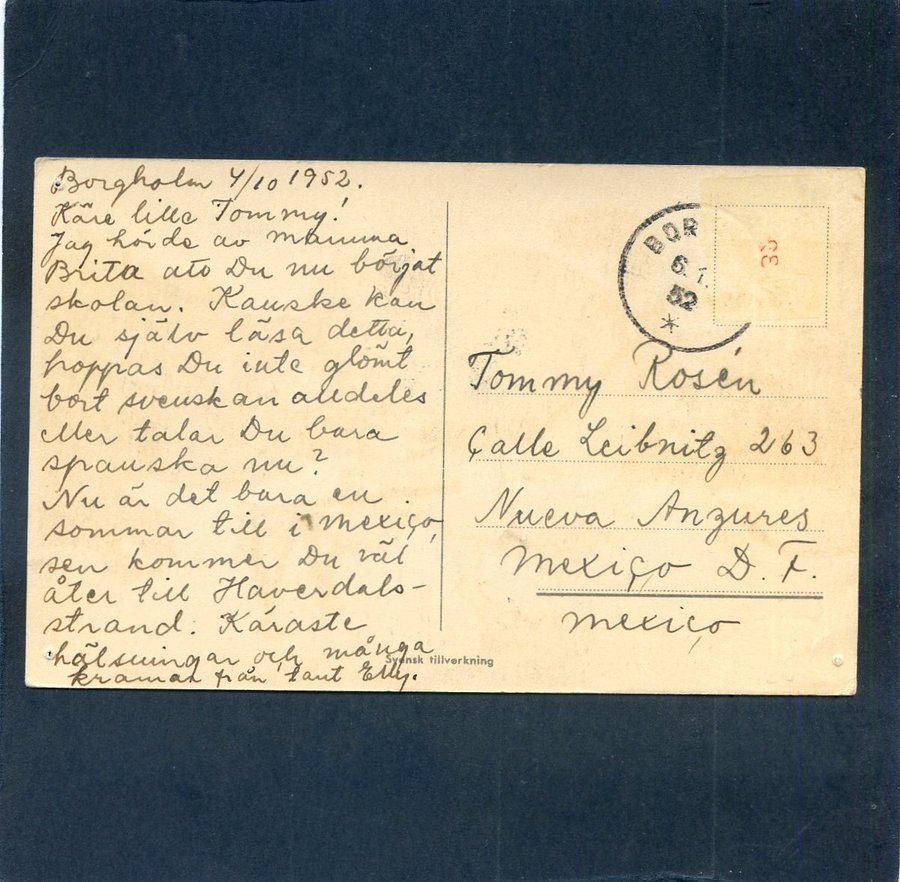 Borgholm 4/10 1952.
Käre lille Tommy!
Jag hörde av mamma
Brita att Du nu börjat
skolan. Kanske kan
Du själv läsa detta,
hoppas Du inte glömt
bort svenskan alldeles
eller talar Du bara
spanska nu?
Nu är det bara en
sommar till i Mexico,
sen kommer Du väl
åter till Haverdals-
strand. Käraste
hälsningar och många
kramar från tant Elly.
BOR
6.1.
52
*
33
Tommy Rosén
Calle Leibnitz 263
Nueva Anzures
Mexico D. F.
Mexico
Svensk tillverkning